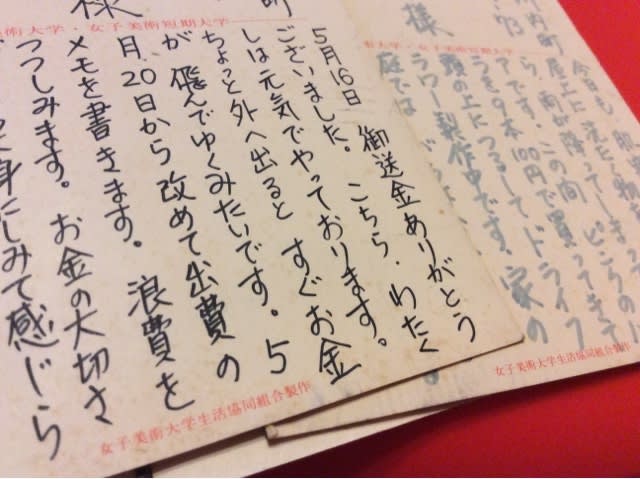 様
町
美術大学・女子美術短期大学
5月16日 御送金ありがとう
ございました。こちら、わたく
しは元気でやっております。
ちょっと外へ出ると すぐお金
が 飛んでゆくみたいです。5
月20日から改めて出費の
メモを書きます。浪費を
つつしみます。お金の大切さ
身にしみて感じら
女子美術大学生活協同組合製作
川内町
73
様
大学・女子美術短期大学
今日も
屋上に 洗たくして
雨が降って
ら、この間 買ってきて
です。100円で
うを9本 ドライフ
頭の上につるして
ラワー製作中です。家の
庭では
女子美術大学生活協同組合製作